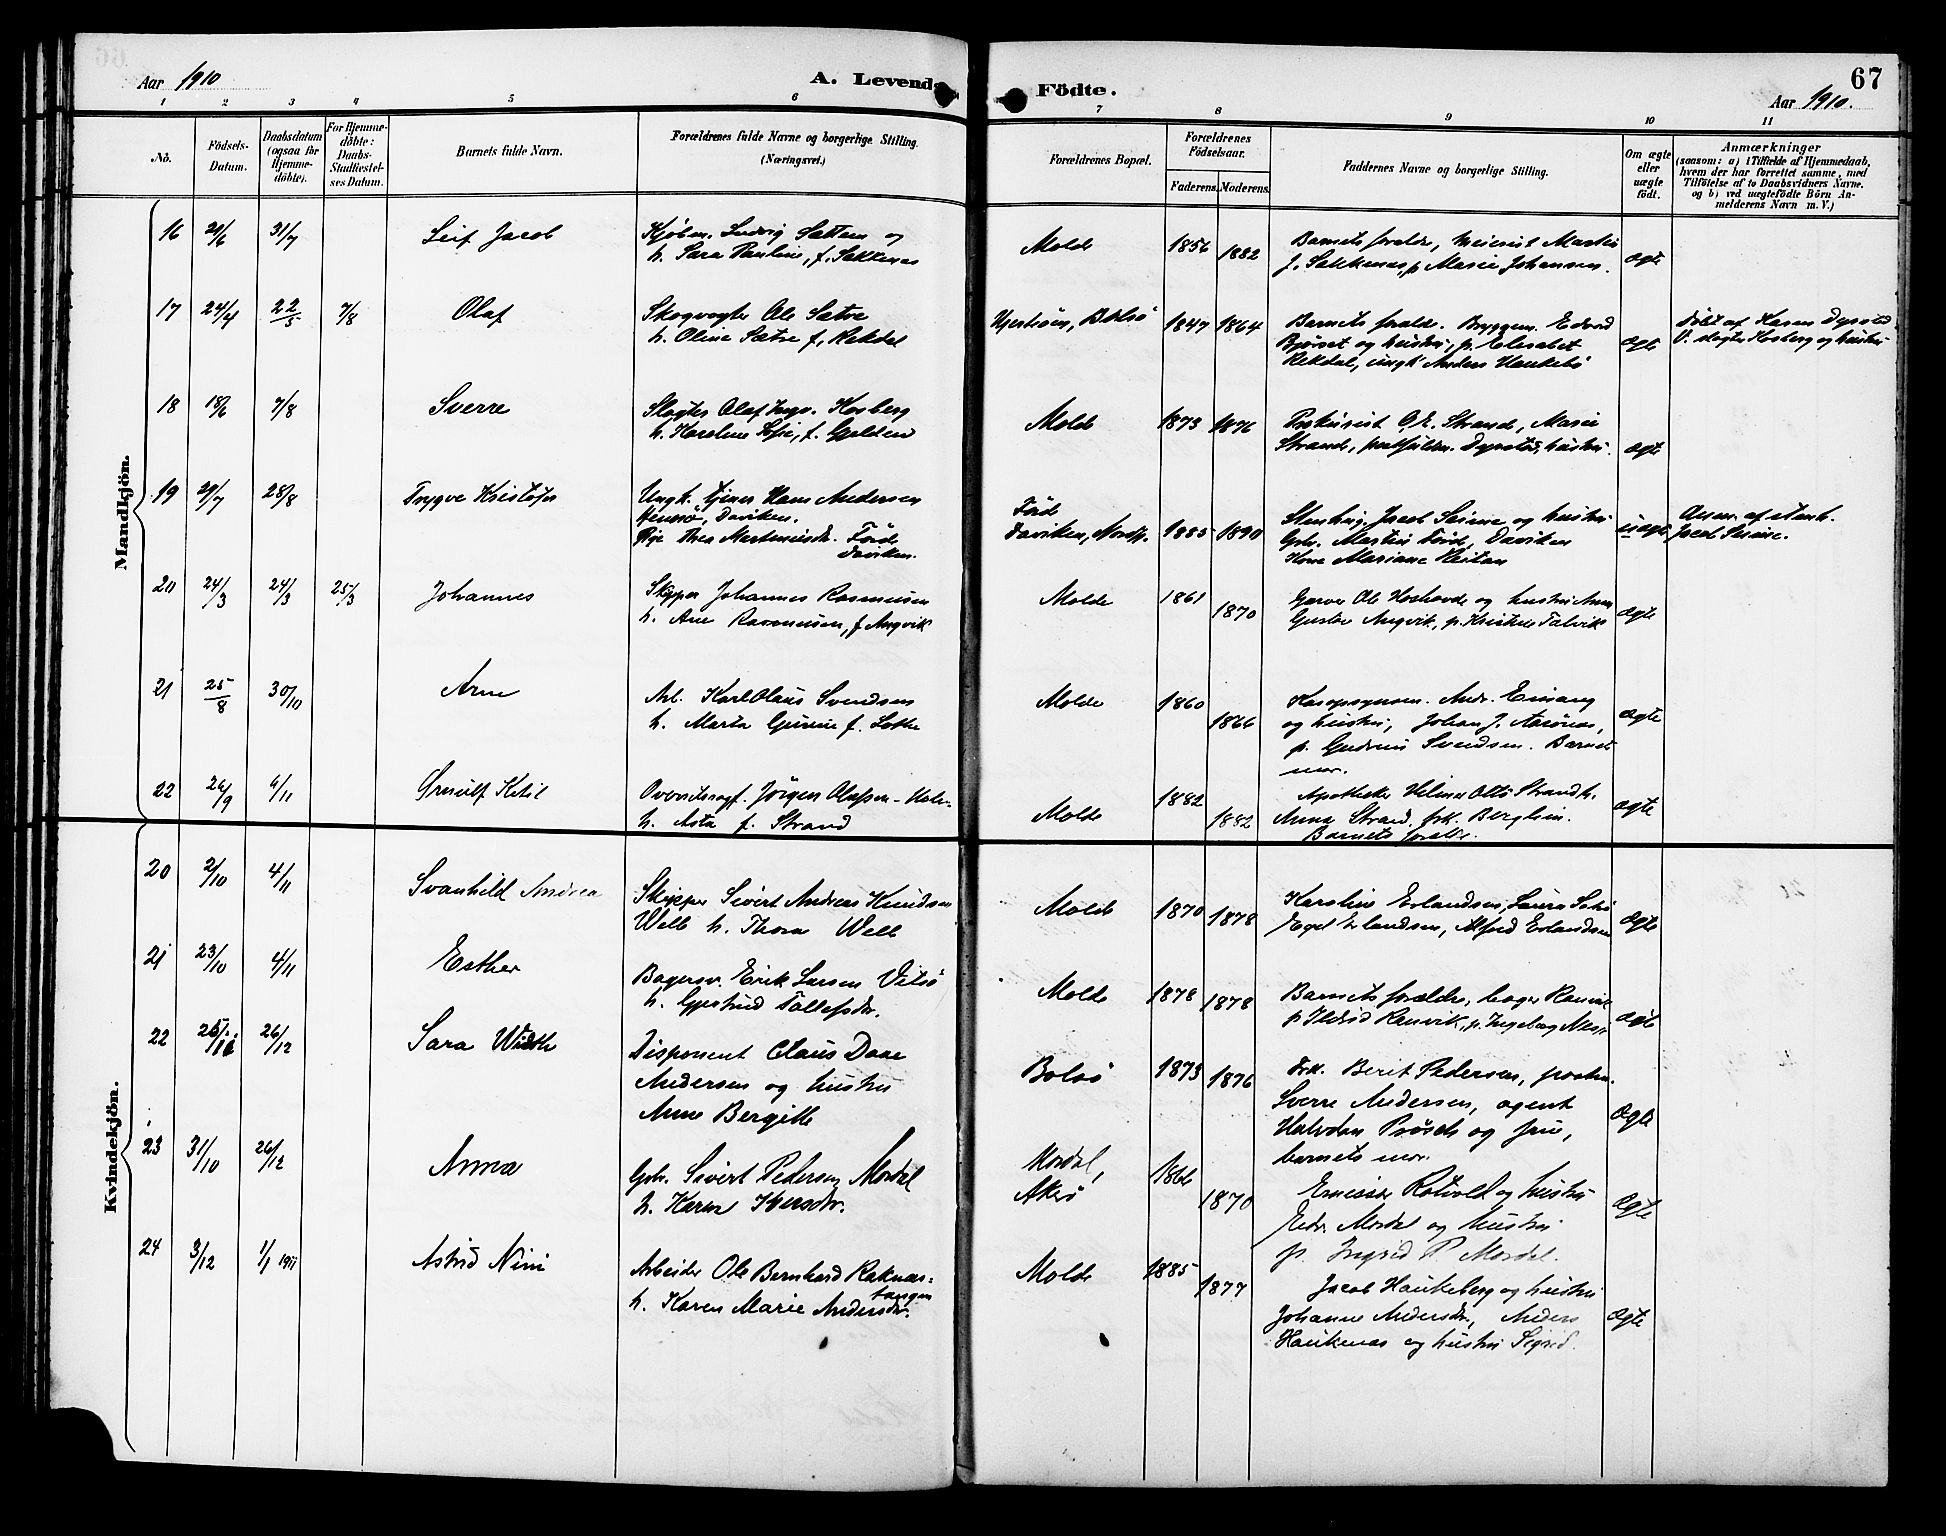 Aar 1910
A. Levende Födte.
67
Aar 1910.
1 2 3 4 5 6 7 8 9 10 11
No.
Födsels-Datum.
Daabsdatum (ogsaa for Hjemmedöbte).
For Hjemmedöbte: Daabs-Stadfæstelses Datum.
Barnets fulde Navn.
Forældrenes fulde Navne og borgerlige Stilling. (Næringsvei.)
Forældrenes Bopæl.
Forældrenes Födselsaar.
Faderens. Moderens.
Faddernes Navne og borgerlige Stilling.
Om ægte eller uægte födt.
Anmærkninger
(saasom: a) i Tilfælde af Hjemmedaab,
hvem der har forrettet samme, med
Tilföielse af to Daabsvidners Navne.
og b) ved uægtefödte Börn An-
melderens Navn m. V.)
Mandkjön.
16 21/6 31/7 Leif Jacob
Kjöbm. Ludvig Sættem og
h. Sara Pauline, f. Sekkenæs
Molde 1856 1882
Barnets forældre, meierist Martin
J. Sekkenæs, p. Marie Johansen.
ægte
17 24/4 22/5 7/8 Olaf
Skogvogter Ole Sætre
h. Oline Sætre f. Rekdal
Hjertöen, Bolsö 1847 1864
Barnets forældre. Bryggem. Edvard
Bjørset og hustru, p. Elisabet
Rekdal, ungk. Anders Haukebö
ægte
Döbt af Karen Dyrstad
V. slagter Kosberg og hustru
18 18/6 7/8 Sverre
Slagter Olaf Ingv. Kosberg
h. Karoline Sofie, f. Gjelden
Molde 1873 1876
Prokurist O. E. Strand, Marie
Strand, postfuldm. Dyrstad, hustru.
ægte
19 29/7 28/8 Trygve Kristofer
Ungk. tjener Hans Andersen
Hennö, Daviken.
Pige Thea Martinusdr. Förde
Daviken.
Förde
Daviken, Nordfj. 1885 1890
Stenhug. Jacob Seime og hustru
Gbr. Martin Förde, Daviken
Kone Mariane Heitan
uægte
Anm. af stenh.
Jacob Seime.
20 24/3 24/3 25/3 Johannes
Skipper Johannes Rasmussen
h. Ane Rasmussen, f. Angvik
Molde 1861 1870
Garver Ole Hoshovde og hustru Anna
Gustav Angvik, p. Kristine Talvik
ægte
21 25/8 30/10 Arne
Arb. Karl Olaus Svendsen
h. Marta Gurine f. Lothe
Molde 1860 1866
Andr. Einang
og hustru, Johan J. Aarönæs,
p. Gudrun Svendsen. Barnets
mor.
ægte
22 26/9 6/11 Ørnulf Ketil
Overretssagf. Jörgen Olafsen-Holm
h. Asta f. Strand
Molde 1882 1882
Apotheker Hilmar Otto Strand h.
Anna Strand, frk. Berglien.
Barnets forældre.
ægte
Kvindekjön.
20 2/10 4/11 Svanhild Andrea
Skipper Sivert Andreas Knudsen
Welle h. Thora Welle
Molde 1870 1878
Karoline Erlandsen, Laura Solsö
Egel Erlandsen, Alfred Erlandsen
ægte
21 23/10 4/11 Esther
Bagersv. Erik Larsen Vilsö
h. Gjertrud Tollefsdr.
Molde 1878 1878
Barnets forældre, bager Ranvik
p. Ildrid Ranvik, p. Ingeborg Næss
ægte
22 25/11 26/12 Sara Wiidth
Disponent Claus Daae
Andersen og hustru
Anne Bergitte
Bolsö 1873 1876
Frk. Berit Pedersen, postm.
Sverre Andersen, agent
Halvdan Prösch og frue,
barnets mor.
ægte
23 31/10 26/12 Anna
Gbr. Sivert Pedersen Mordal
h. Karen Iversdr.
Mordal,
Akerö 1866 1870
Emissær Rotvold og hustru
Edv. Mordal og hustru
p. Ingrid P. Mordal.
ægte
24 3/12 1/1 1911 Astrid Nini
Arbeider Ole Bernhard Raknæs-
tangen
h. Karen Marie Andersdr.
Molde 1885 1877
Jacob Haukeberg og hustru
Johanne Andersdr, Anders
Haukenæs og hustru Sigrid.
ægte